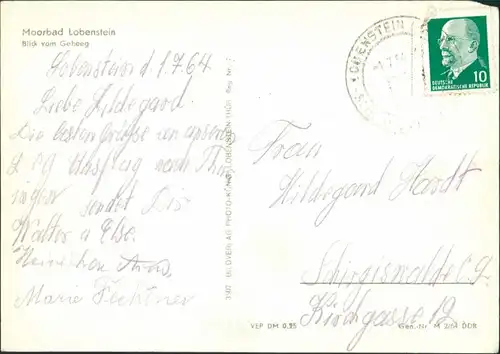 Moorbad Lobenstein
Blick vom Geheeg
Lobenstein d 1.7.64
Liebe Hildegard.
Die besten Grüsse von unserem
Ausflug nach Thür
ingen sendet Dir
Walter u Else.
Marie Fechtner
BILDVERLAG PHOTO-KÖNIG LOBENSTEIN THÜR.
LOBENSTEIN
10
DEUTSCHE
DEMOKRATISCHE REPUBLIK
Frau
Hildegard Hardt
Schirgiswalde
Kirchgasse 12
VEP DM 0,25
Gen.-Nr. M 2/64 DDR